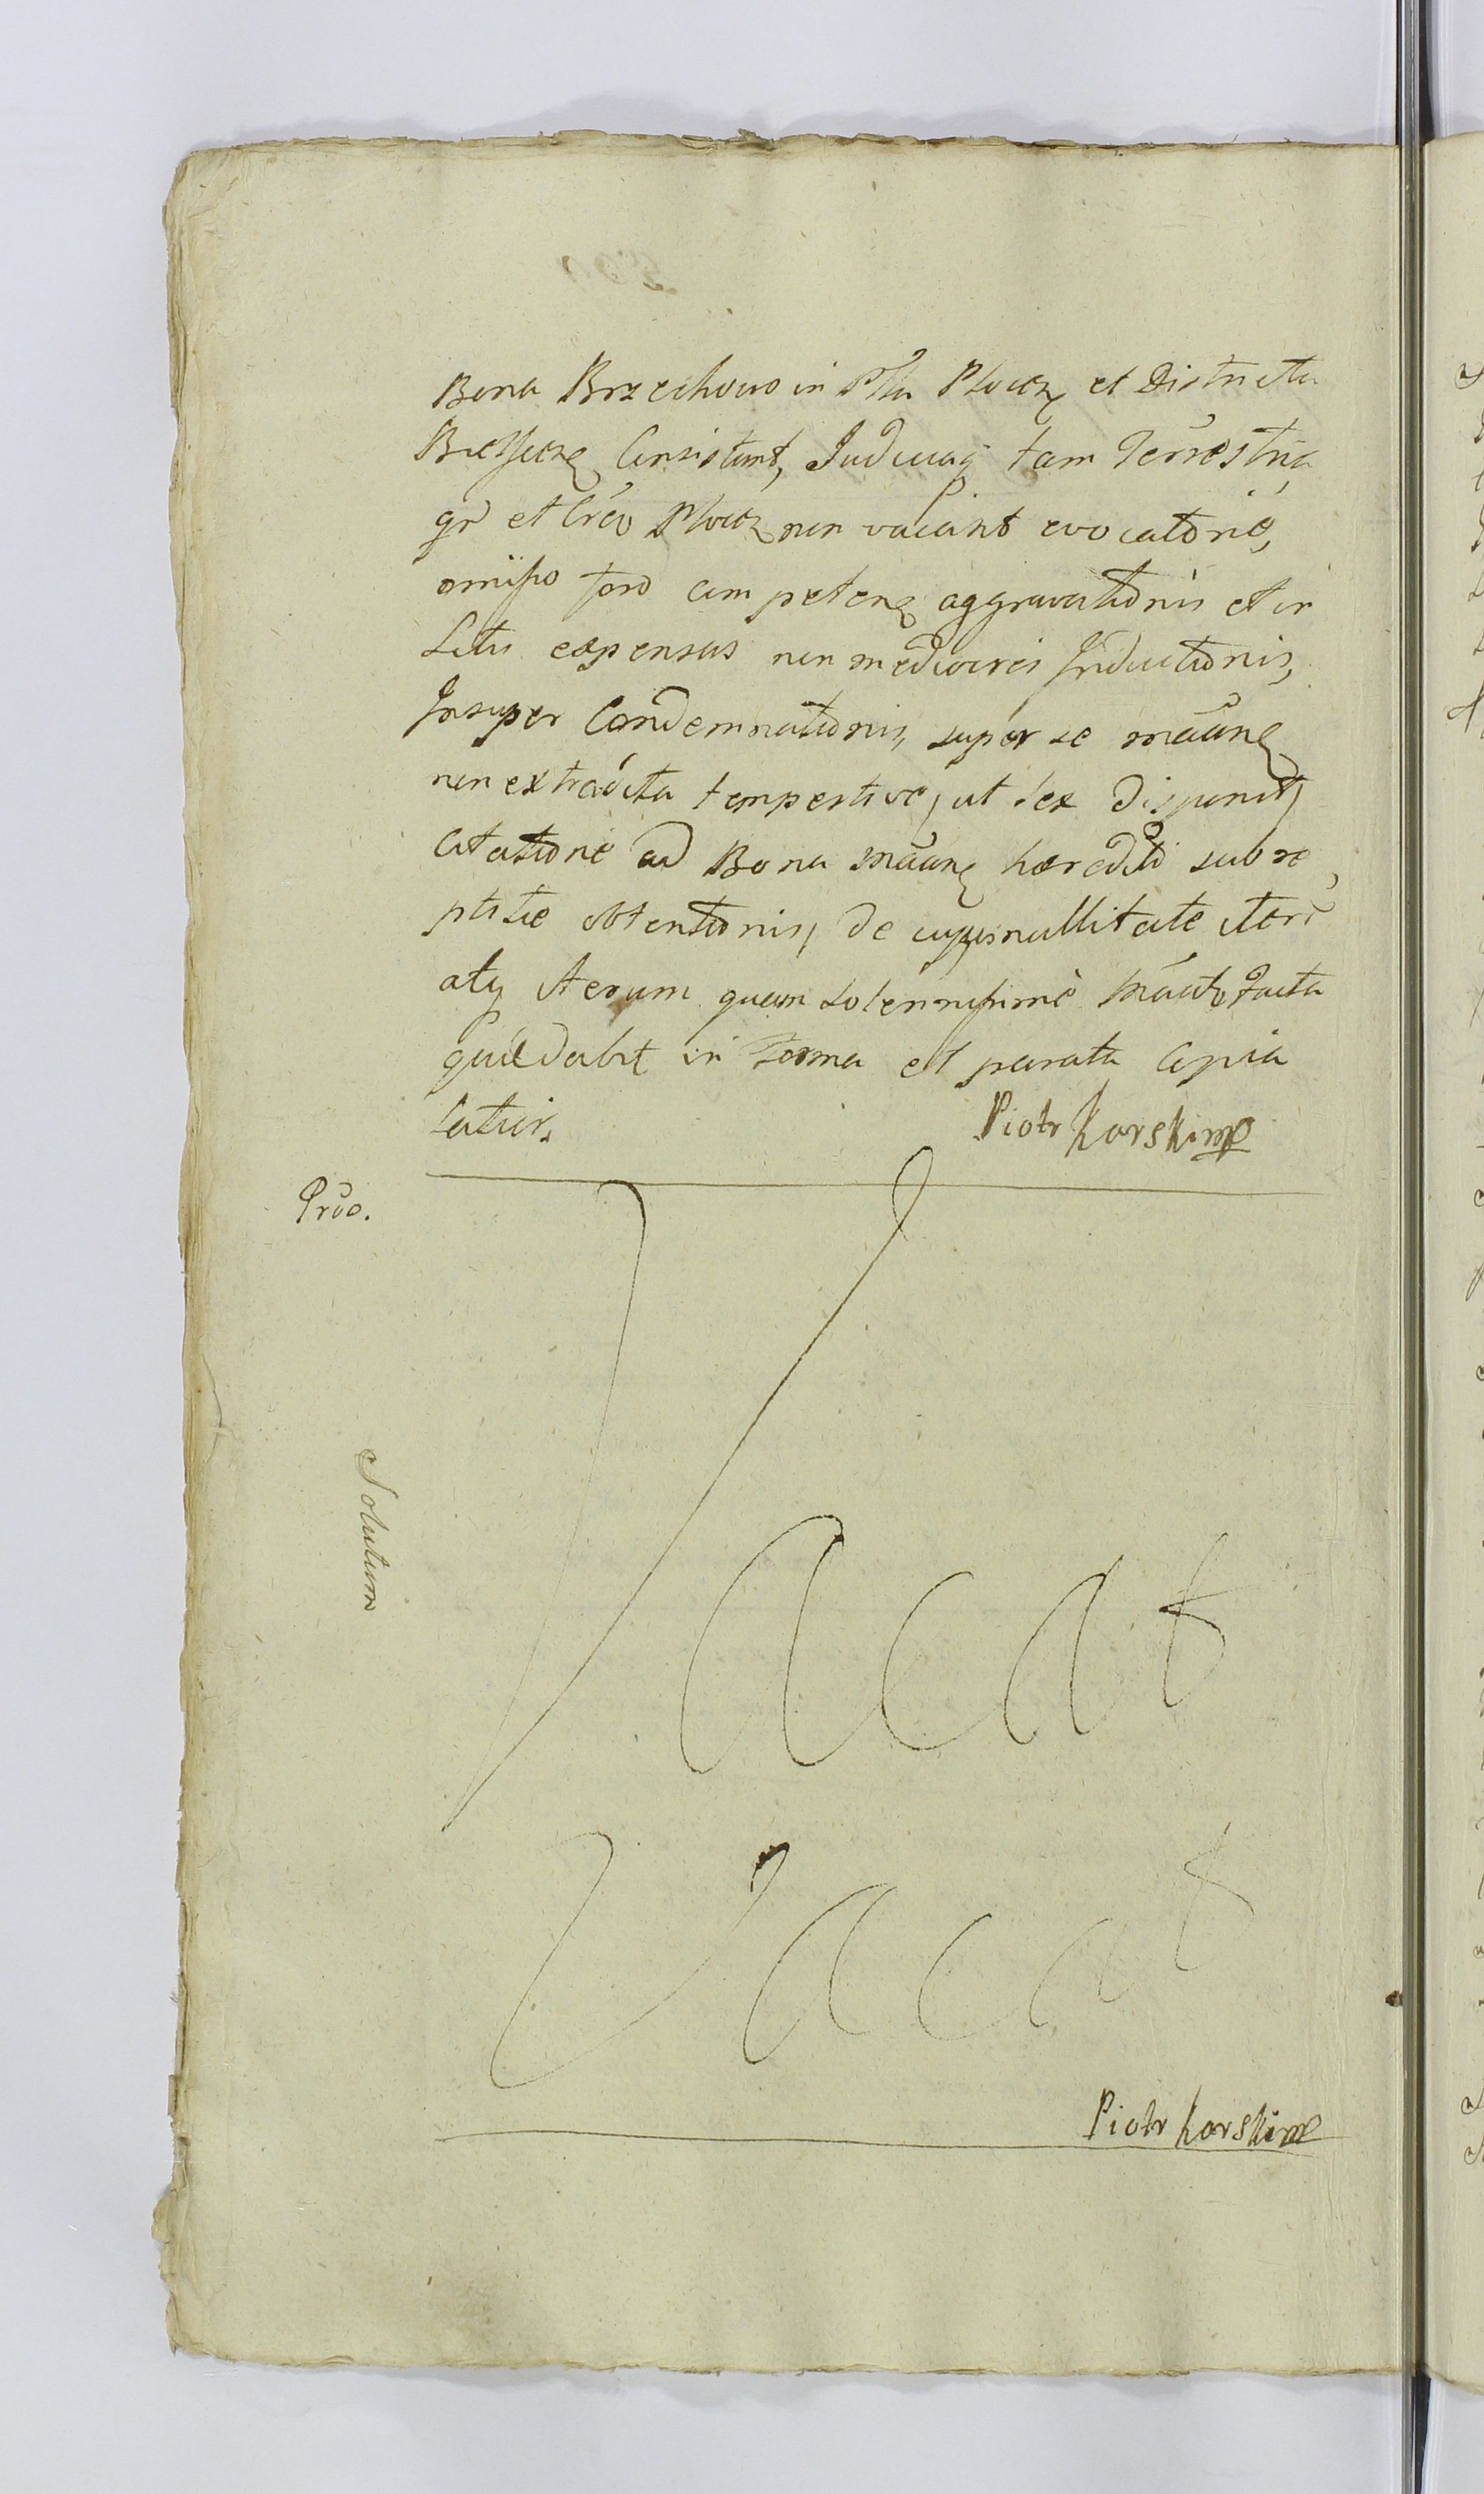 Bona Brzechowo in Pltu Plocen et Districtu
Bielscen Consistunt, Judiciaq tam Terrestria
qr et Crev Plocen non vacant evocatorie,
omisso foro competenę aggravationis et in
Litis expensas non mediocres Inductionis,
Insuper Condemnationis, super se maune
non extradita tempestive, ut lex disponit,
citatione ad Bona maune hæredit subre,
ptitie obtentionis, de cujus nullitate iteru
atq iterum quam solennissime Manto facta
quæ dabit in forma et parata copia
latur.
Piotr Karski mp
Proc.
Solutum
Vacat
Vacat
Piotr Karski mp